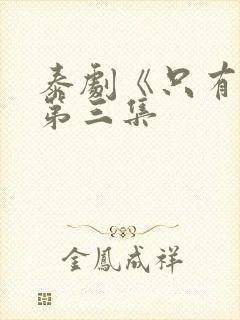 泰劇《只有
第三集
金鳳成祥